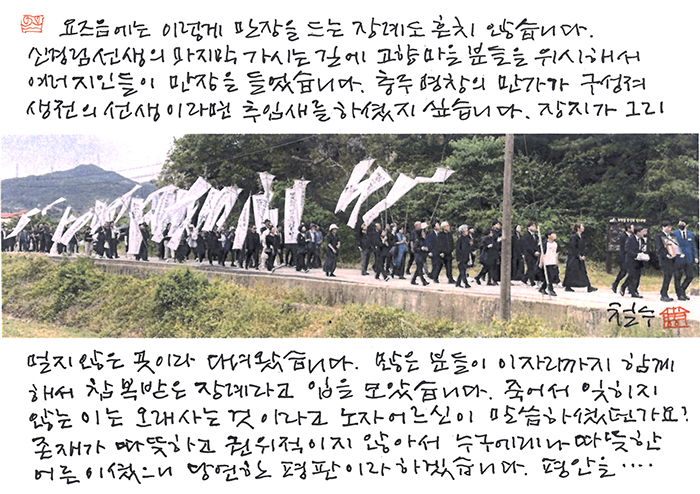 요즈음에는 이렇게 만장을 드는 장례도 흔치 않습니다.
신경림선생의 마지막 가시는 길에 고향마을 분들을 위시해서
여러지인들이 만장을 들었습니다. 충주 명창의 만가가 구성져
생전의 선생이라면 추임새를 하셨지 싶습니다. 장지가 그리
철수
멀지 않은 곳이라 다녀왔습니다. 많은 분들이 이자리까지 함께
해서 참 복받은 장례라고 입을 모았습니다. 죽어서 잊히지
않는 이는 오래사는 것이라고 노자어르신이 말씀하셨던가요?
존재가 따뜻하고 권위적이지 않아서 누구에게나 따뜻한
어른이셨으니 당연한 평판이라 하겠습니다. 평안을····